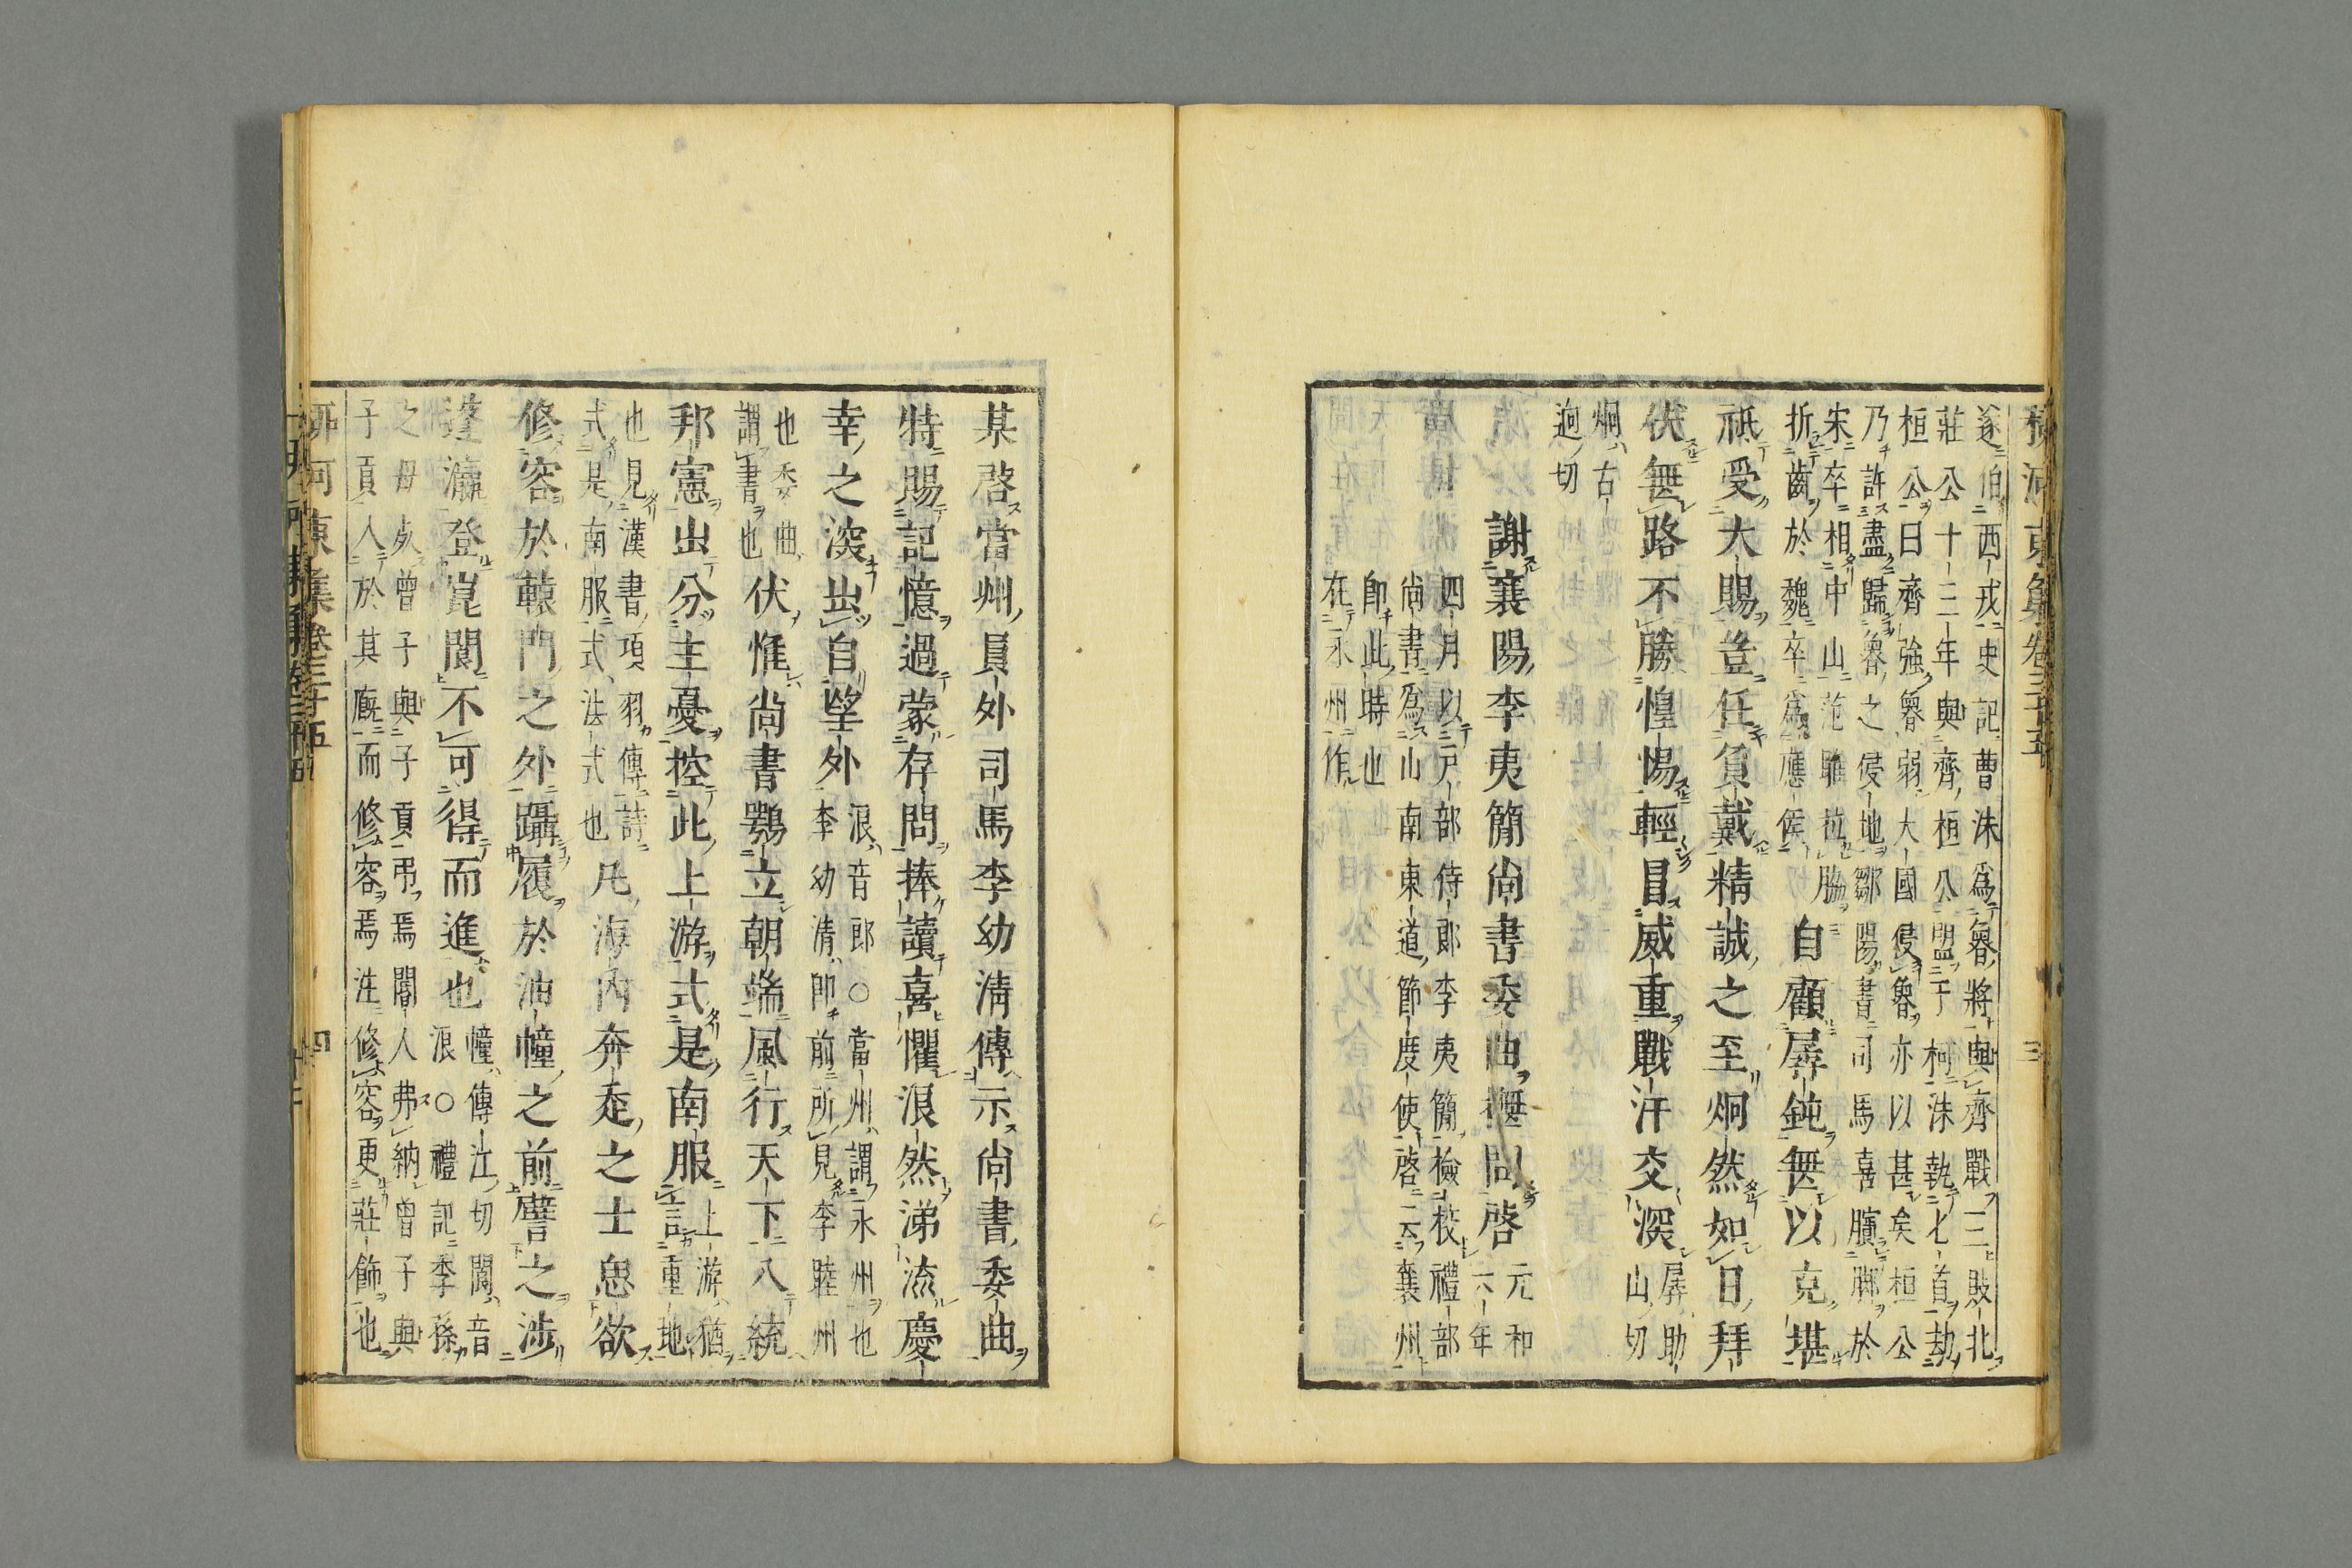 遂伯西戎史記曹沫爲魯將與齊戰三敗北
莊公十三年與齊桓公盟于柯沫執匕首劫
桓公曰齊強魯弱大國侵魯亦以甚矣桓公
乃許盡歸魯之侵地鄒陽書司馬喜臏腳於
宋卒相中山范雎拉脇
折齒於魏卒爲應侯
自顧孱鈍無以克堪
祗受大賜豈任負戴精誠之至炯然如日拜
伏無路不勝惶惕輕冒威重戰汗交深
孱助
山切
炯古
迥切
謝襄陽李夷簡尚書委曲撫問啓
元和
六年
四月以戸部侍郎李夷簡檢校禮部
尚書爲山南東道節度使啓云襄州
卽此時也
在永州作
某啓當州員外司馬李幼淸傳示尚書委曲
特賜記憶過蒙存問捧讀喜懼浪然涕流慶
幸之深出自望外
浪音郎○當州謂永州也
李幼淸卽前所見李睦州
也委曲
謂書也
伏惟尚書鶚立朝端風行天下入統
邦憲出分主憂控此上游式是南服
上游猶
言重地
也見漢書項羽傳詩
式是南服式法式也
凡海內奔走之士思欲
修容於轅門之外躡履於油幢之前譬之涉
蓬瀛登崑閬不可得而進也
幢傳江切閬音
浪○禮記季孫
之母死曾子與子貢弔焉閽人弗納曾子與
子貢入於其廐而修容焉注修容更莊飾也
柳河東集卷三十五
四